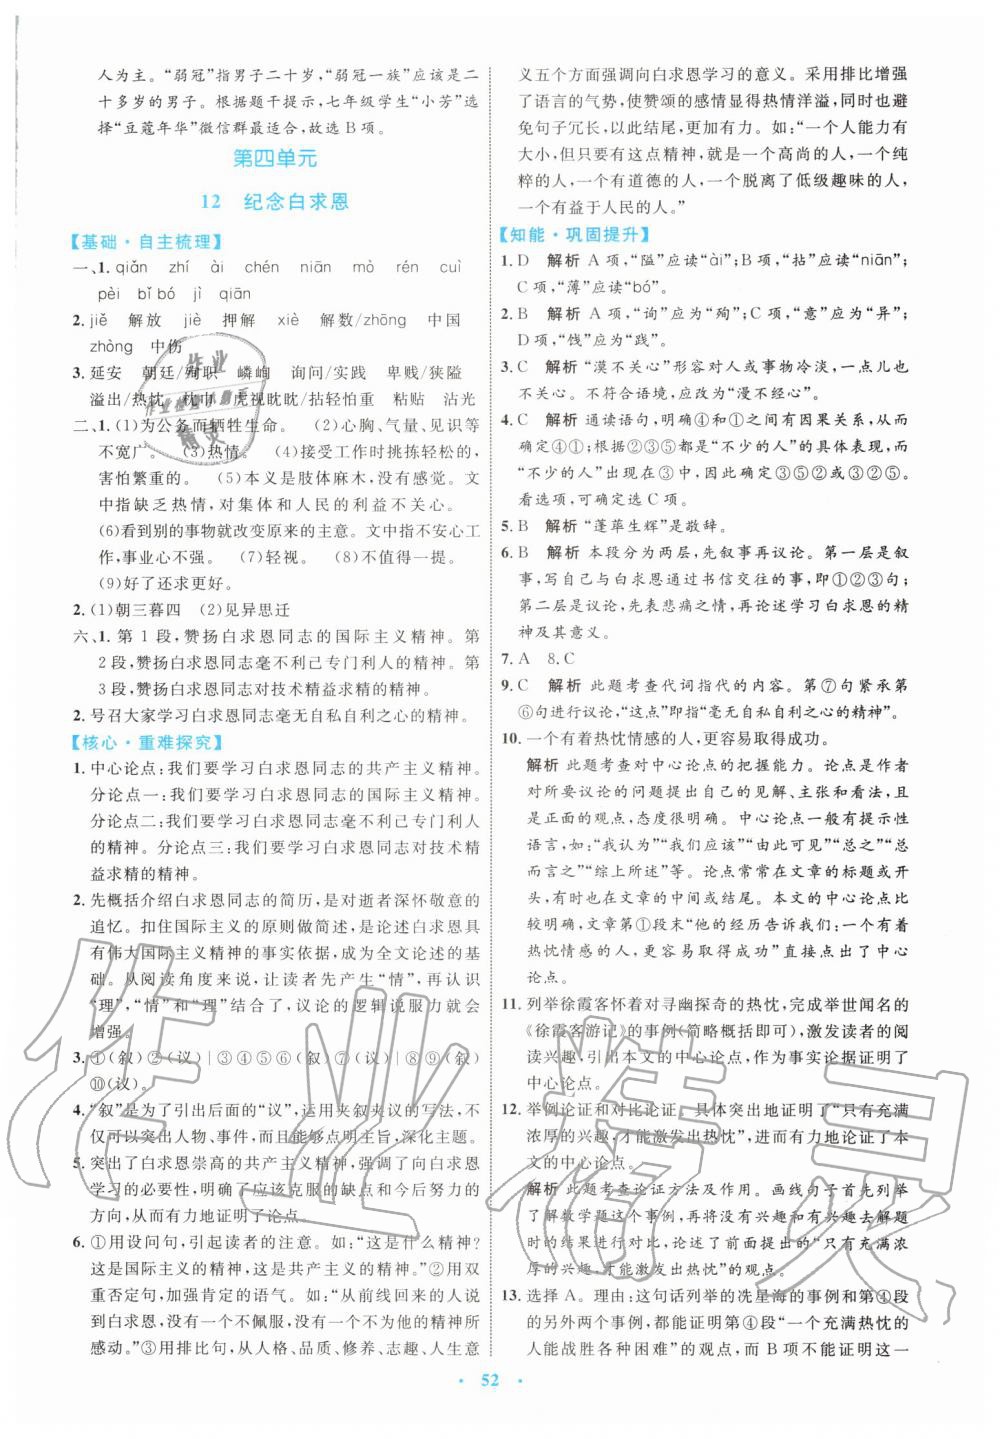 人为主。“弱冠”指男子二十岁，“弱冠一族”应该是二
十多岁的男子。根据题干提示，七年级学生“小芳”选
择“豆蔻年华”微信群最适合，故选B项。
第四单元
12 纪念白求恩
【基础·自主梳理】
一、1. qiǎn zhí ài chén niān mò rén cuì
pèi bǐ bó jì qiān
2. jiě 解放 jiè 押解 xiè 解数/zhōng 中国
zhòng 中伤
3. 延安 朝廷/殉职 嶙峋 询问/实践 卑贱/狭隘
溢出/热忱 枕巾 虎视眈眈/拈轻怕重 粘贴 沾光
二、1. (1)为公务而牺牲生命。 (2)心胸、气量、见识等
不宽广。 (3)热情。 (4)接受工作时挑拣轻松的，
害怕繁重的。 (5)本义是肢体麻木，没有感觉。文
中指缺乏热情，对集体和人民的利益不关心。
(6)看到别的事物就改变原来的主意。文中指不安心工
作，事业心不强。 (7)轻视。 (8)不值得一提。
(9)好了还求更好。
2. (1)朝三暮四 (2)见异思迁
六、1. 第1段，赞扬白求恩同志的国际主义精神。第
2段，赞扬白求恩同志毫不利己专门利人的精神。第
3段，赞扬白求恩同志对技术精益求精的精神。
2. 号召大家学习白求恩同志毫无自私自利之心的精神。
【核心·重难探究】
1. 中心论点：我们要学习白求恩同志的共产主义精神。
分论点一：我们要学习白求恩同志的国际主义精神。
分论点二：我们要学习白求恩同志毫不利己专门利人
的精神。分论点三：我们要学习白求恩同志对技术精
益求精的精神。
2. 先概括介绍白求恩同志的简历，是对逝者深怀敬意的
追忆。扣住国际主义的原则做简述，是论述白求恩具
有伟大国际主义精神的事实依据，成为全文论述的基
础。从阅读角度来说，让读者先产生“情”，再认识
“理”，“情”和“理”结合了，议论的逻辑说服力就会
增强。
3. ①(叙)②(议)｜③④⑤⑥(叙)⑦(议)｜⑧⑨(叙)
⑩(议)。
4. “叙”是为了引出后面的“议”，运用夹叙夹议的写法，不
仅可以突出人物、事件，而且能够点明主旨，深化主题。
5. 突出了白求恩崇高的共产主义精神，强调了向白求恩
学习的必要性，明确了应该克服的缺点和今后努力的
方向，从而有力地证明了论点。
6. ①用设问句，引起读者的注意。如：“这是什么精神？
这是国际主义的精神，这是共产主义的精神。”②用双
重否定句，加强肯定的语气。如：“从前线回来的人说
到白求恩，没有一个不佩服，没有一个不为他的精神所
感动。”③用排比句，从人格、品质、修养、志趣、人生意
义五个方面强调向白求恩学习的意义。采用排比增强
了语言的气势，使赞颂的感情显得热情洋溢，同时也避
免句子冗长，以此结尾，更加有力。如：“一个人能力有
大小，但只要有这点精神，就是一个高尚的人，一个纯
粹的人，一个有道德的人，一个脱离了低级趣味的人，
一个有益于人民的人。”
【知能·巩固提升】
1. D 解析 A项，“隘”应读“ài”；B项，“拈”应读“niān”；
C项，“薄”应读“bó”。
2. B 解析 A项，“询”应为“殉”；C项，“意”应为“异”；
D项，“饯”应为“践”。
3. C 解析 “漠不关心”形容对人或事物冷淡，一点儿也
不关心。不符合语境，应为“漫不经心”。
4. C 解析 通读语句，明确④和①之间有因果关系，从而
确定④①；根据②③⑤都是“不少的人”的具体表现，而
“不少的人”出现在③中，因此要么③②⑤或③②⑤。
看选项，可确定选C项。
5. B 解析 “蓬荜生辉”是敬辞。
6. B 解析 本段分为两层，先叙事再议论。第一层是叙
事，写自己与白求恩通过书信交往的事，即①②③句；
第二层是议论，先表悲痛之情，再论述学习白求恩的精
神及其意义。
7. A 8. C
9. C 解析 此题考查代词指代的内容。第⑦句紧承第
⑥句进行议论，“这点”即指“毫无自私自利之心的精神”。
10. 一个有着热忱情感的人，更容易取得成功。
解析 此题考查对中心论点的把握能力。论点是作者
对所要议论的问题提出自己的见解、主张和看法，且
是正面的观点，态度很明确。中心论点一般有提示性
语言，如：“我认为”“我们应该”“由此可见”“总之”“总
而言之”“综上所述”等。论点常常在文章的标题或开
头，有时也在文章的中间或结尾。本文的中心论点也比
较明确，文章第①段末“他的经历告诉我们：一个有着
热忱情感的人，更容易取得成功”直接点出了中心
论点。
11. 列举徐霞客怀着对寻幽探奇的热忱，完成举世闻名的
《徐霞客游记》的事例(简略概括即可)，激发读者的阅
读兴趣，引出本文的中心论点，作为事实论据证明了
中心论点。
12. 举例论证和对比论证。具体突出地证明了“只有充满
浓厚的兴趣，才能激发出热忱”，进而有力地论证了本
文的中心论点。
解析 此题考查论证方法及作用。画线句子首先列举
了解数学题这个事例，再将没有兴趣和有兴趣去解题
时的结果进行对比，论述了前面提出的“只有充满浓
厚的兴趣，才能激发出热忱”的观点。
13. 选择A。理由：这句话列举的冼星海的事例和第④段
的另外两个事例，都能证明第④段“一个充满热忱的
人能战胜各种困难”的观点，而B项不能证明这一
52
作业
作业检查小助手
精灵
作业精灵